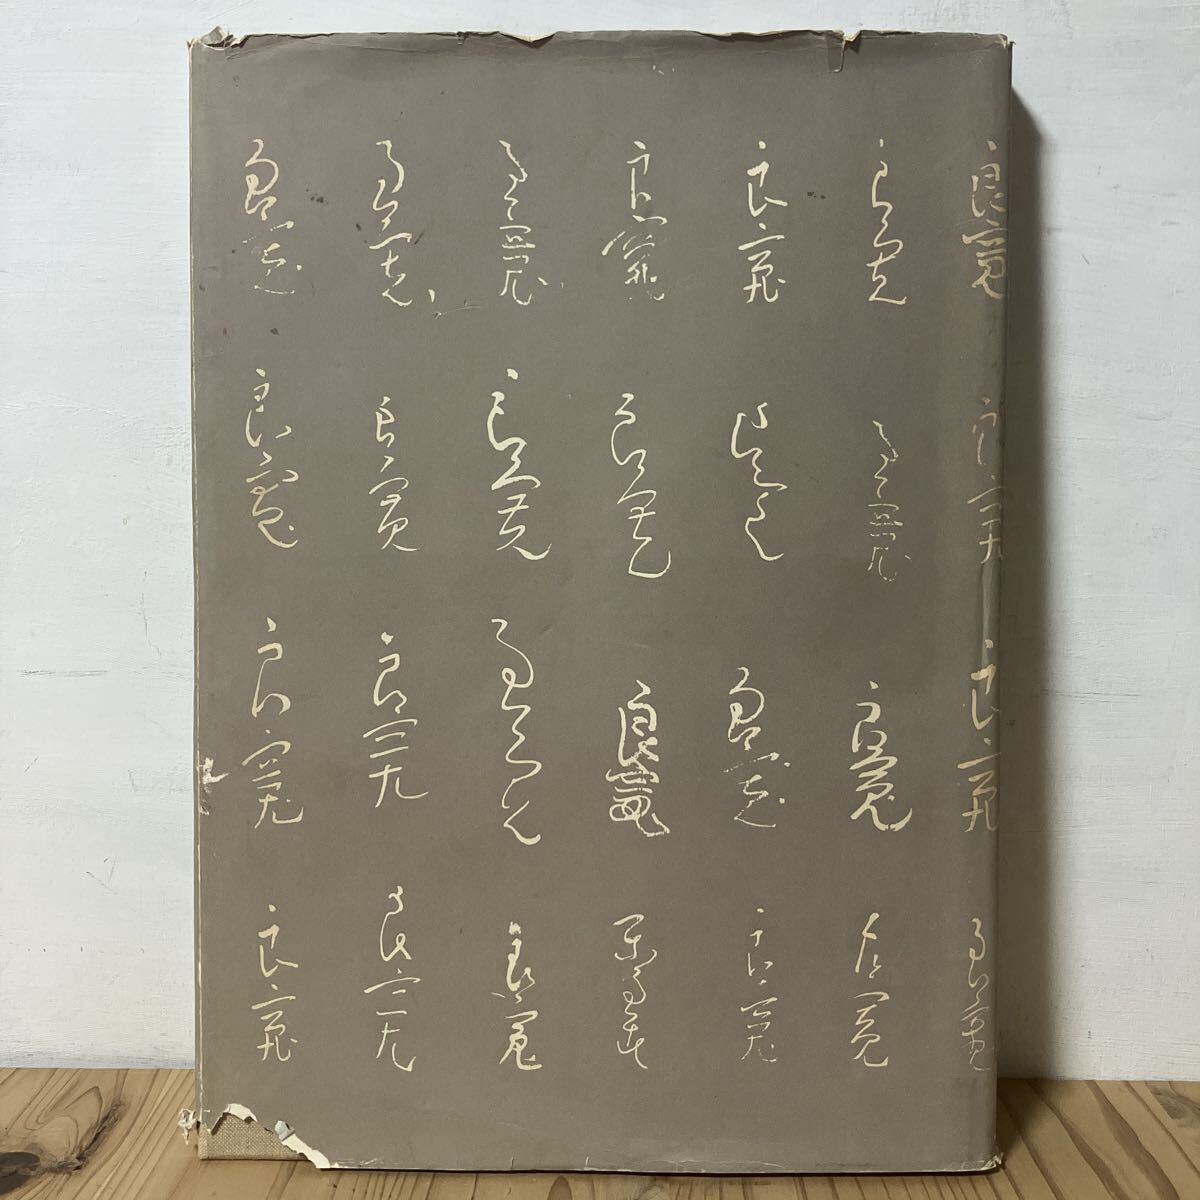 良寛 良寛 良寛 良寛
良寛 良寛 良寛 良寛
良寛 良寛 良寛
良寛 良寛 良寛
良寛 良寛 良寛 良寛
良寛 良寛 良寛 良寛
良寛 良寛 良寛 良寛